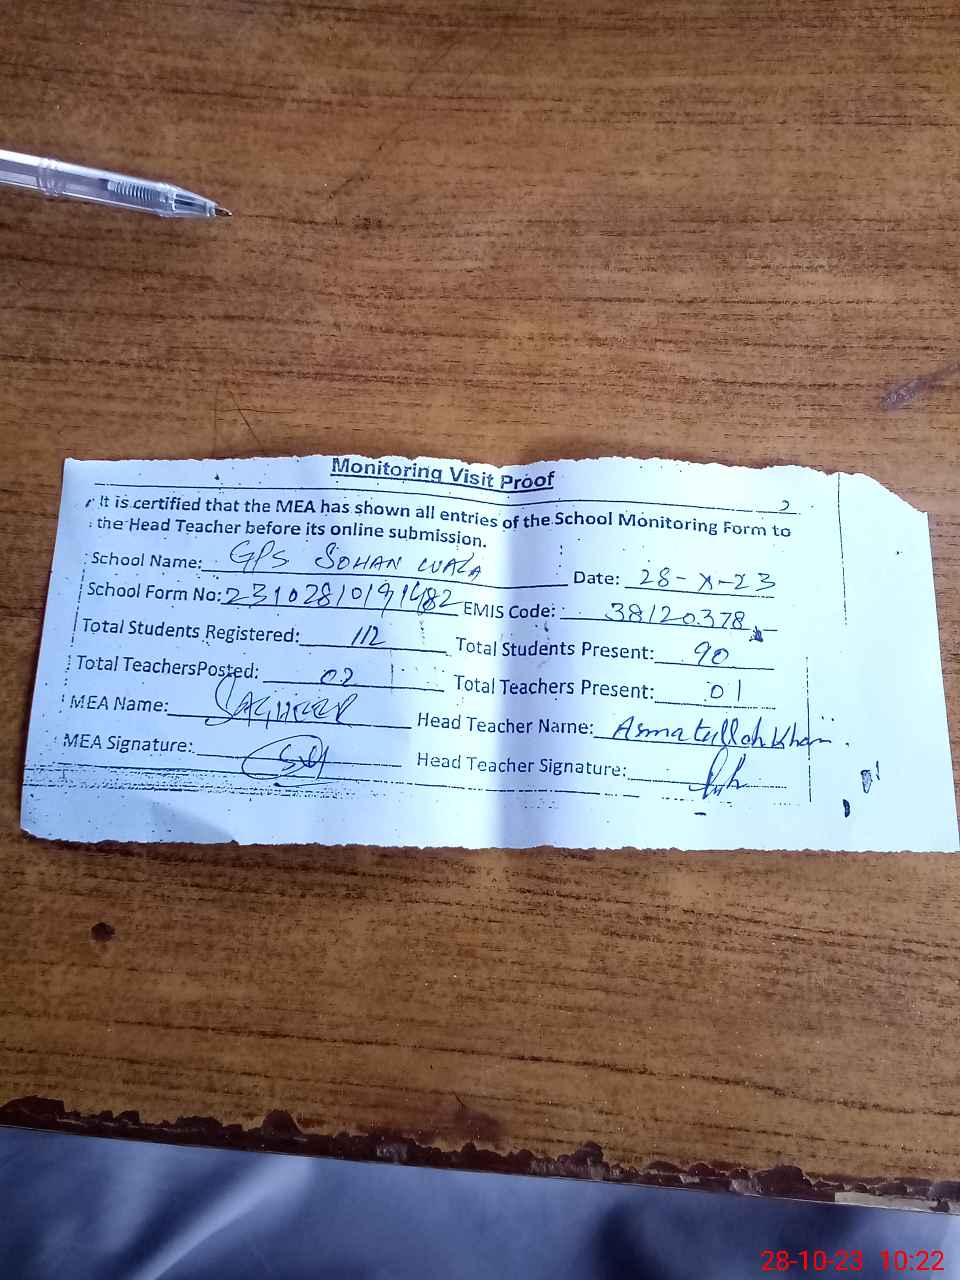 Monitoring Visit Proof
It is certified that the MEA has shown all entries of the School Monitoring Form to
the Head Teacher before its online submission.
School Name: GPS SOHAN WALA Date: 28-X-23
School Form No: 23102810191482 EMIS Code: 38120378
Total Students Registered: 112 Total Students Present: 90
Total TeachersPosted: 02 Total Teachers Present: 01
MEA Name: SAGHEER Head Teacher Name: Asmatullah Khan
MEA Signature: Head Teacher Signature:
28-10-23 10:22